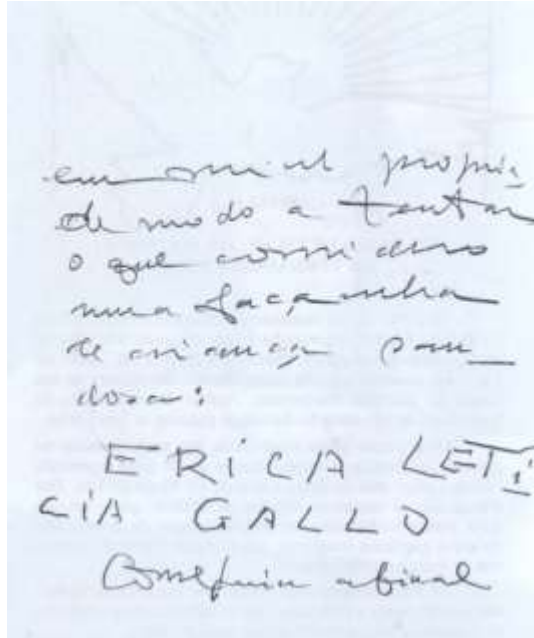 em mim propria
de modo a tentar
o que considero
numa façanha
de criança
dosa:
ERiCA LETí
CiA GALLO
Conseguir afinal